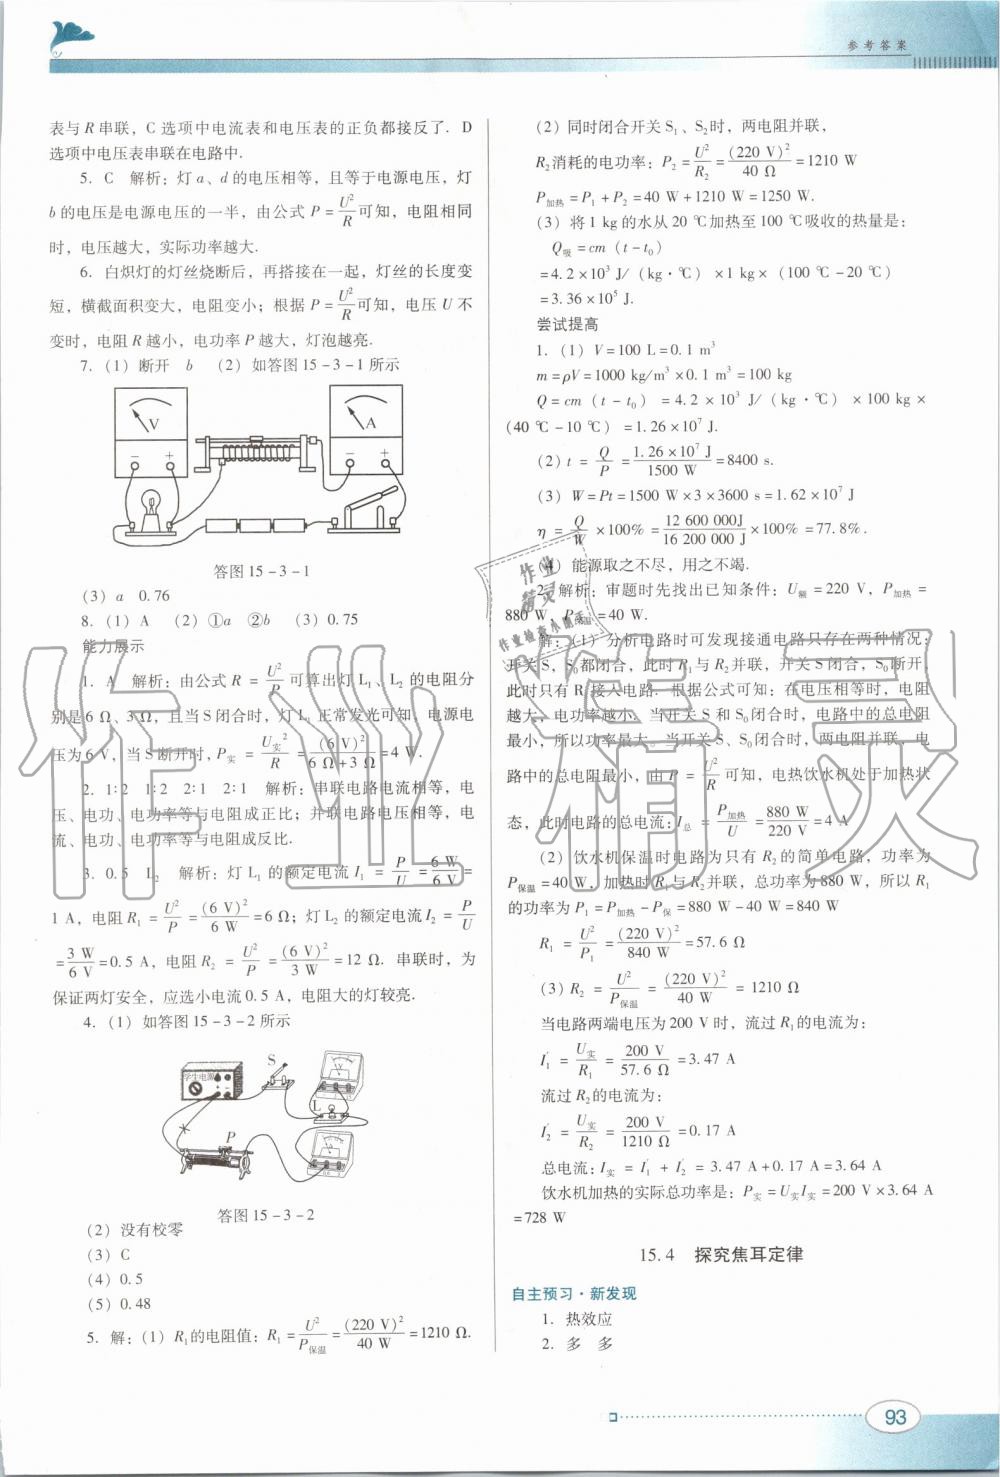 参考答案
表与 R 串联，C 选项中电流表和电压表的正负都接反了. D
选项中电压表串联在电路中.
5. C 解析：灯 a、d 的电压相等，且等于电源电压，灯
b 的电压是电源电压的一半，由公式 P = U²/R 可知，电阻相同
时，电压越大，实际功率越大.
6. 白炽灯的灯丝烧断后，再搭接在一起，灯丝的长度变
短，横截面积变大，电阻变小；根据 P = U²/R 可知，电压 U 不
变时，电阻 R 越小，电功率 P 越大，灯泡越亮.
7. (1) 断开 b (2) 如答图 15-3-1 所示
V
A
− +
− +
答图 15-3-1
(3) a 0.76
8. (1) A (2) ①a ②b (3) 0.75
能力展示
1. A 解析：由公式 R = U²/P 可算出灯 L₁、L₂ 的电阻分
别是 6 Ω、3 Ω，且当 S 闭合时，灯 L₁ 正常发光可知，电源电
压为 6 V，当 S 断开时，P实 = U实²/R = (6 V)²/(6 Ω+3 Ω) = 4 W.
2. 1∶2 1∶2 2∶1 2∶1 解析：串联电路电流相等，电
压、电功、电功率等与电阻成正比；并联电路电压相等，电
流、电功、电功率等与电阻成反比.
3. 0.5 L₂ 解析：灯 L₁ 的额定电流 I₁ = P/U = 6 W/6 V =
1 A，电阻 R₁ = U²/P = (6 V)²/6 W = 6 Ω；灯 L₂ 的额定电流 I₂ = P/U
= 3 W/6 V = 0.5 A，电阻 R₂ = U²/P = (6 V)²/3 W = 12 Ω. 串联时，为
保证两灯安全，应选小电流 0.5 A，电阻大的灯较亮.
4. (1) 如答图 15-3-2 所示
学生电源
S
L
P
答图 15-3-2
(2) 没有校零
(3) C
(4) 0.5
(5) 0.48
5. 解：(1) R₁ 的电阻值：R₁ = U²/P保温 = (220 V)²/40 W = 1210 Ω.
(2) 同时闭合开关 S₁、S₂ 时，两电阻并联，
R₂ 消耗的电功率：P₂ = U²/R₂ = (220 V)²/40 Ω = 1210 W
P加热 = P₁ + P₂ = 40 W + 1210 W = 1250 W.
(3) 将 1 kg 的水从 20 ℃ 加热至 100 ℃ 吸收的热量是：
Q吸 = cm (t − t₀)
= 4.2×10³ J/ (kg·℃) ×1 kg× (100 ℃ −20 ℃)
= 3.36×10⁵ J.
尝试提高
1. (1) V = 100 L = 0.1 m³
m = ρV = 1000 kg/m³ ×0.1 m³ = 100 kg
Q = cm (t − t₀) = 4.2 × 10³ J/ (kg·℃) × 100 kg ×
(40 ℃ −10 ℃) = 1.26×10⁷ J.
(2) t = Q/P = 1.26×10⁷ J/1500 W = 8400 s.
(3) W = Pt = 1500 W×3×3600 s = 1.62×10⁷ J
η = Q/W ×100% = 12 600 000J/16 200 000 J ×100% = 77.8%.
(4) 能源取之不尽，用之不竭.
2. 解析：审题时先找出已知条件：U额 = 220 V，P加热 =
880 W，P保温 = 40 W.
解：(1) 分析电路时可发现接通电路只存在两种情况：
开关 S，S₀ 都闭合，此时 R₁ 与 R₂ 并联，开关 S 闭合，S₀ 断开，
此时只有 R 接入电路. 根据公式可知：在电压相等时，电阻
越大，电功率越小. 当开关 S 和 S₀ 闭合时，电路中的总电阻
最小，所以功率最大. 当开关 S、S₀ 闭合时，两电阻并联，电
路中的总电阻最小，由 P = U²/R 可知，电热饮水机处于加热状
态，此时电路的总电流：I总 = P加热/U = 880 W/220 V = 4 A
(2) 饮水机保温时电路为只有 R₂ 的简单电路，功率为
P保温 = 40 W，加热时 R₁ 与 R₂ 并联，总功率为 880 W，所以 R₁
的功率为 P₁ = P加热 − P保 = 880 W − 40 W = 840 W
R₁ = U²/P₁ = (220 V)²/840 W = 57.6 Ω
(3) R₂ = U²/P保温 = (220 V)²/40 W = 1210 Ω
当电路两端电压为 200 V 时，流过 R₁ 的电流为：
I₁′ = U实/R₁ = 200 V/57.6 Ω = 3.47 A
流过 R₂ 的电流为：
I₂′ = U实/R₂ = 200 V/1210 Ω = 0.17 A
总电流：I实 = I₁′ + I₂′ = 3.47 A + 0.17 A = 3.64 A
饮水机加热的实际总功率是：P实 = U实I实 = 200 V×3.64 A
= 728 W
15.4 探究焦耳定律
自主预习·新发现
1. 热效应
2. 多 多
93
作业精灵
作业精灵